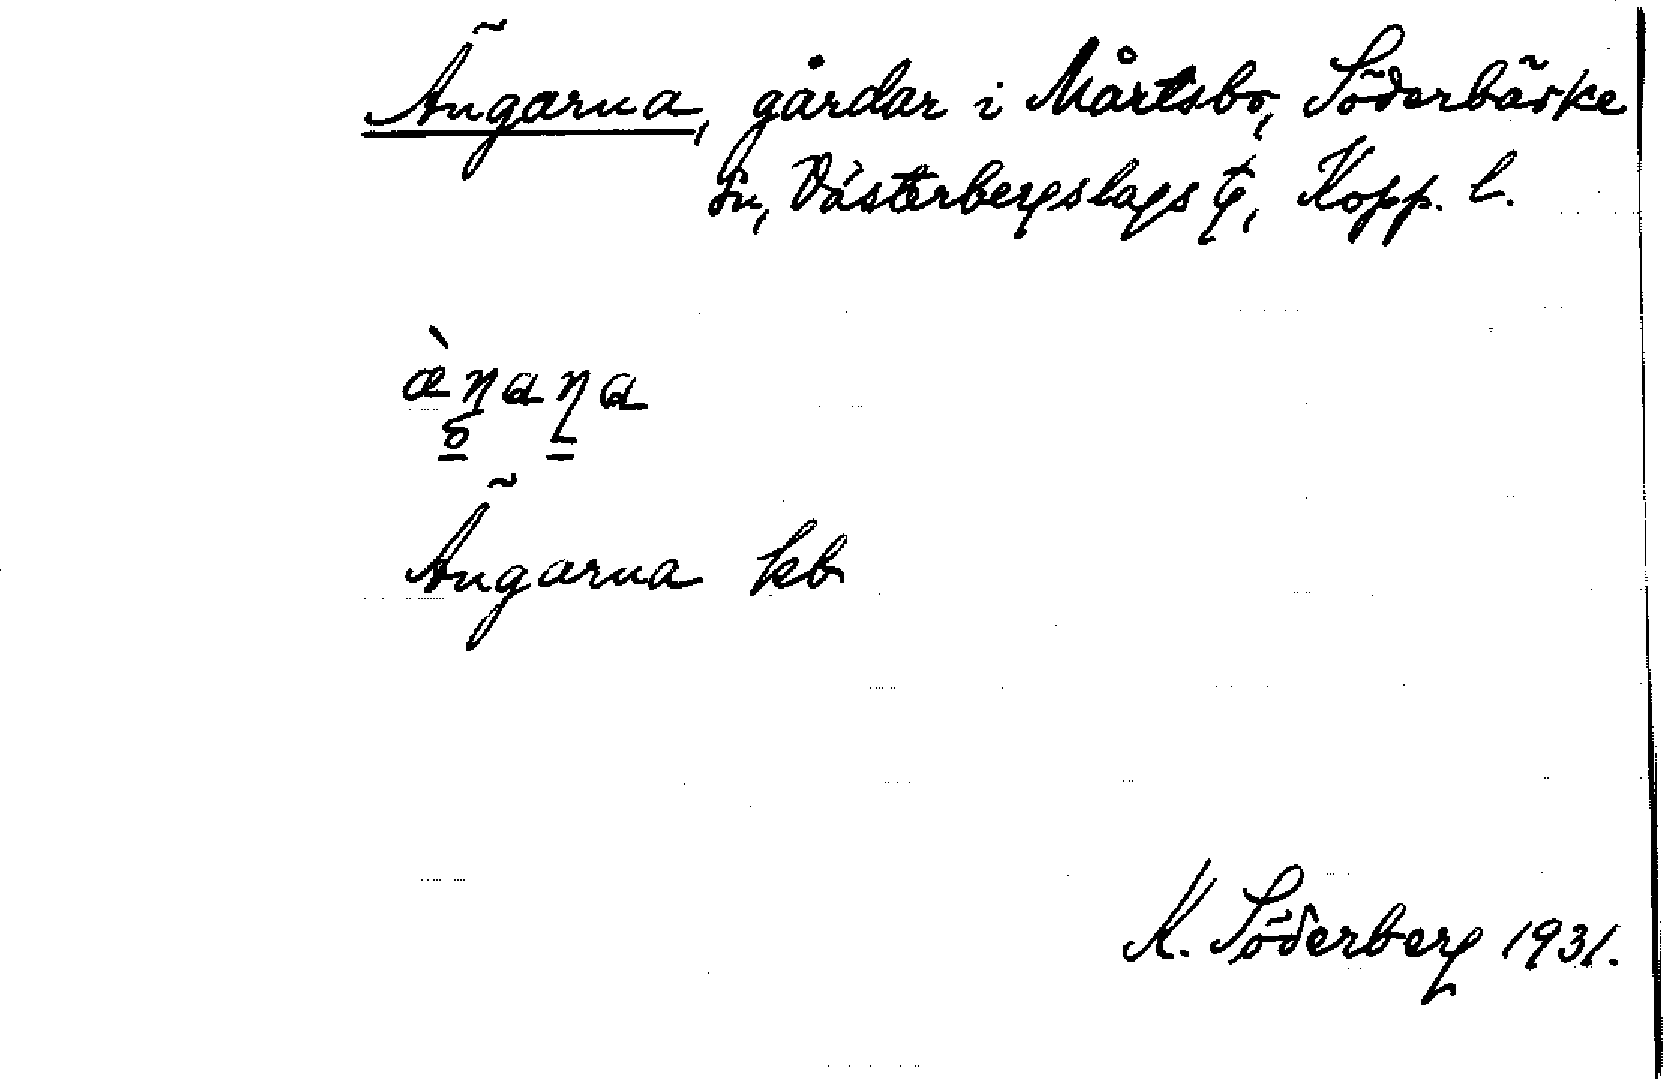 Ängarna, gårdar i Mårtsbo, Söderbärke
sn, Västerbergslags tg, Kopp. l.
æ̀ŋaṇa
Ängarna kb
K. Söderberg 1931.